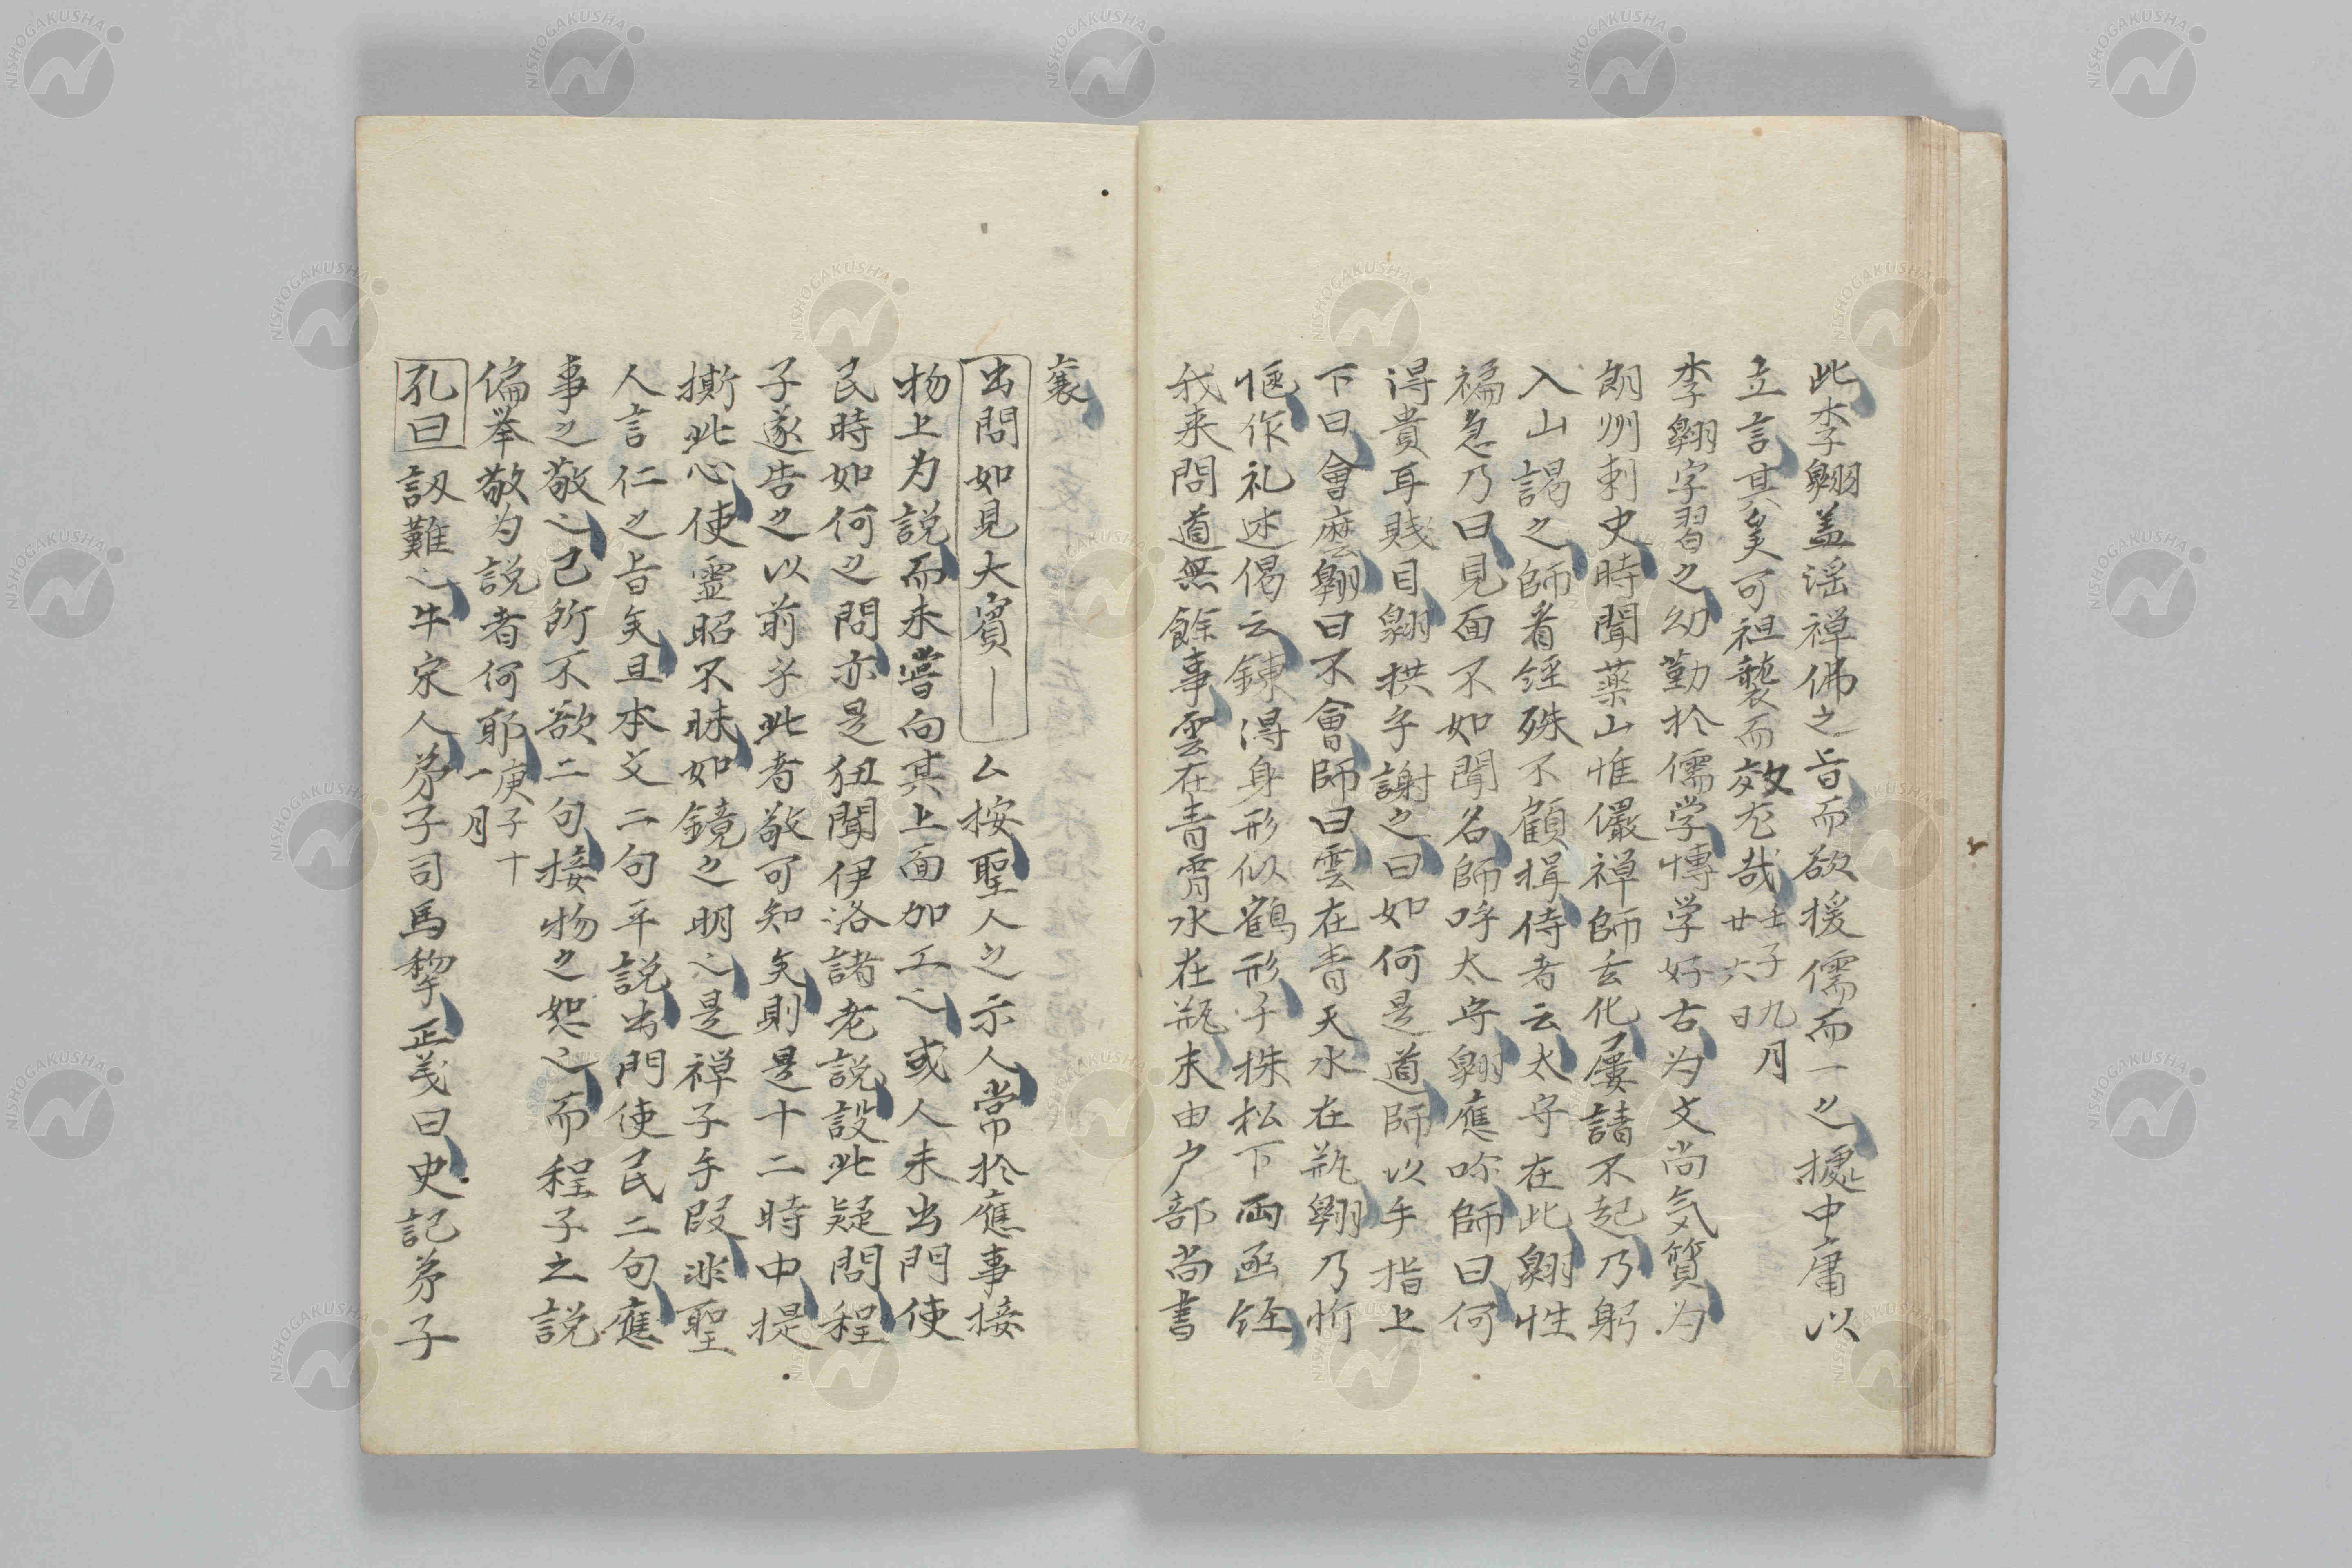 此李翺盖謡禅佛之旨而欲援儒而一之據中庸以
立言其矣可祖襲而效尤哉壬子九月廿六日
李翺字習之幼勤於儒学博学好古为文尚気質为
朗州刺史時聞薬山惟儼禅師玄化屢請不起乃躬
入山謁之師看経殊不顧揖侍者云太守在此翺性
褊急乃曰見面不如聞名師呼太守翺應喏師曰何
得貴耳賎目翺拱手謝之曰如何是道師以手指上
下曰會麽翺曰不會師曰雲在青天水在瓶翺乃忻
愜作礼述偈云錬得身形似鶴形千株松下両函経
我来問道無餘事雲在青霄水在瓶末由户部尚書
襄
出問如見大賓｜ム按聖人之示人常於應事接
物上为説而未嘗向其上面加工之或人未出門使
民時如何之問亦是狃聞伊洛諸老説設此疑問程
子遂告之以前乎此者敬可知矣則是十二時中提
撕此心使霊昭不昧如鏡之明之是禅子手段非聖
人言仁之旨矣且本文二句平説出門使民二句應
事之敬之己所不欲二句接物之恕之而程子之説
偏挙敬为説者何耶庚子十一月
孔曰訒難之牛宋人弟子司馬犂正義曰史記弟子